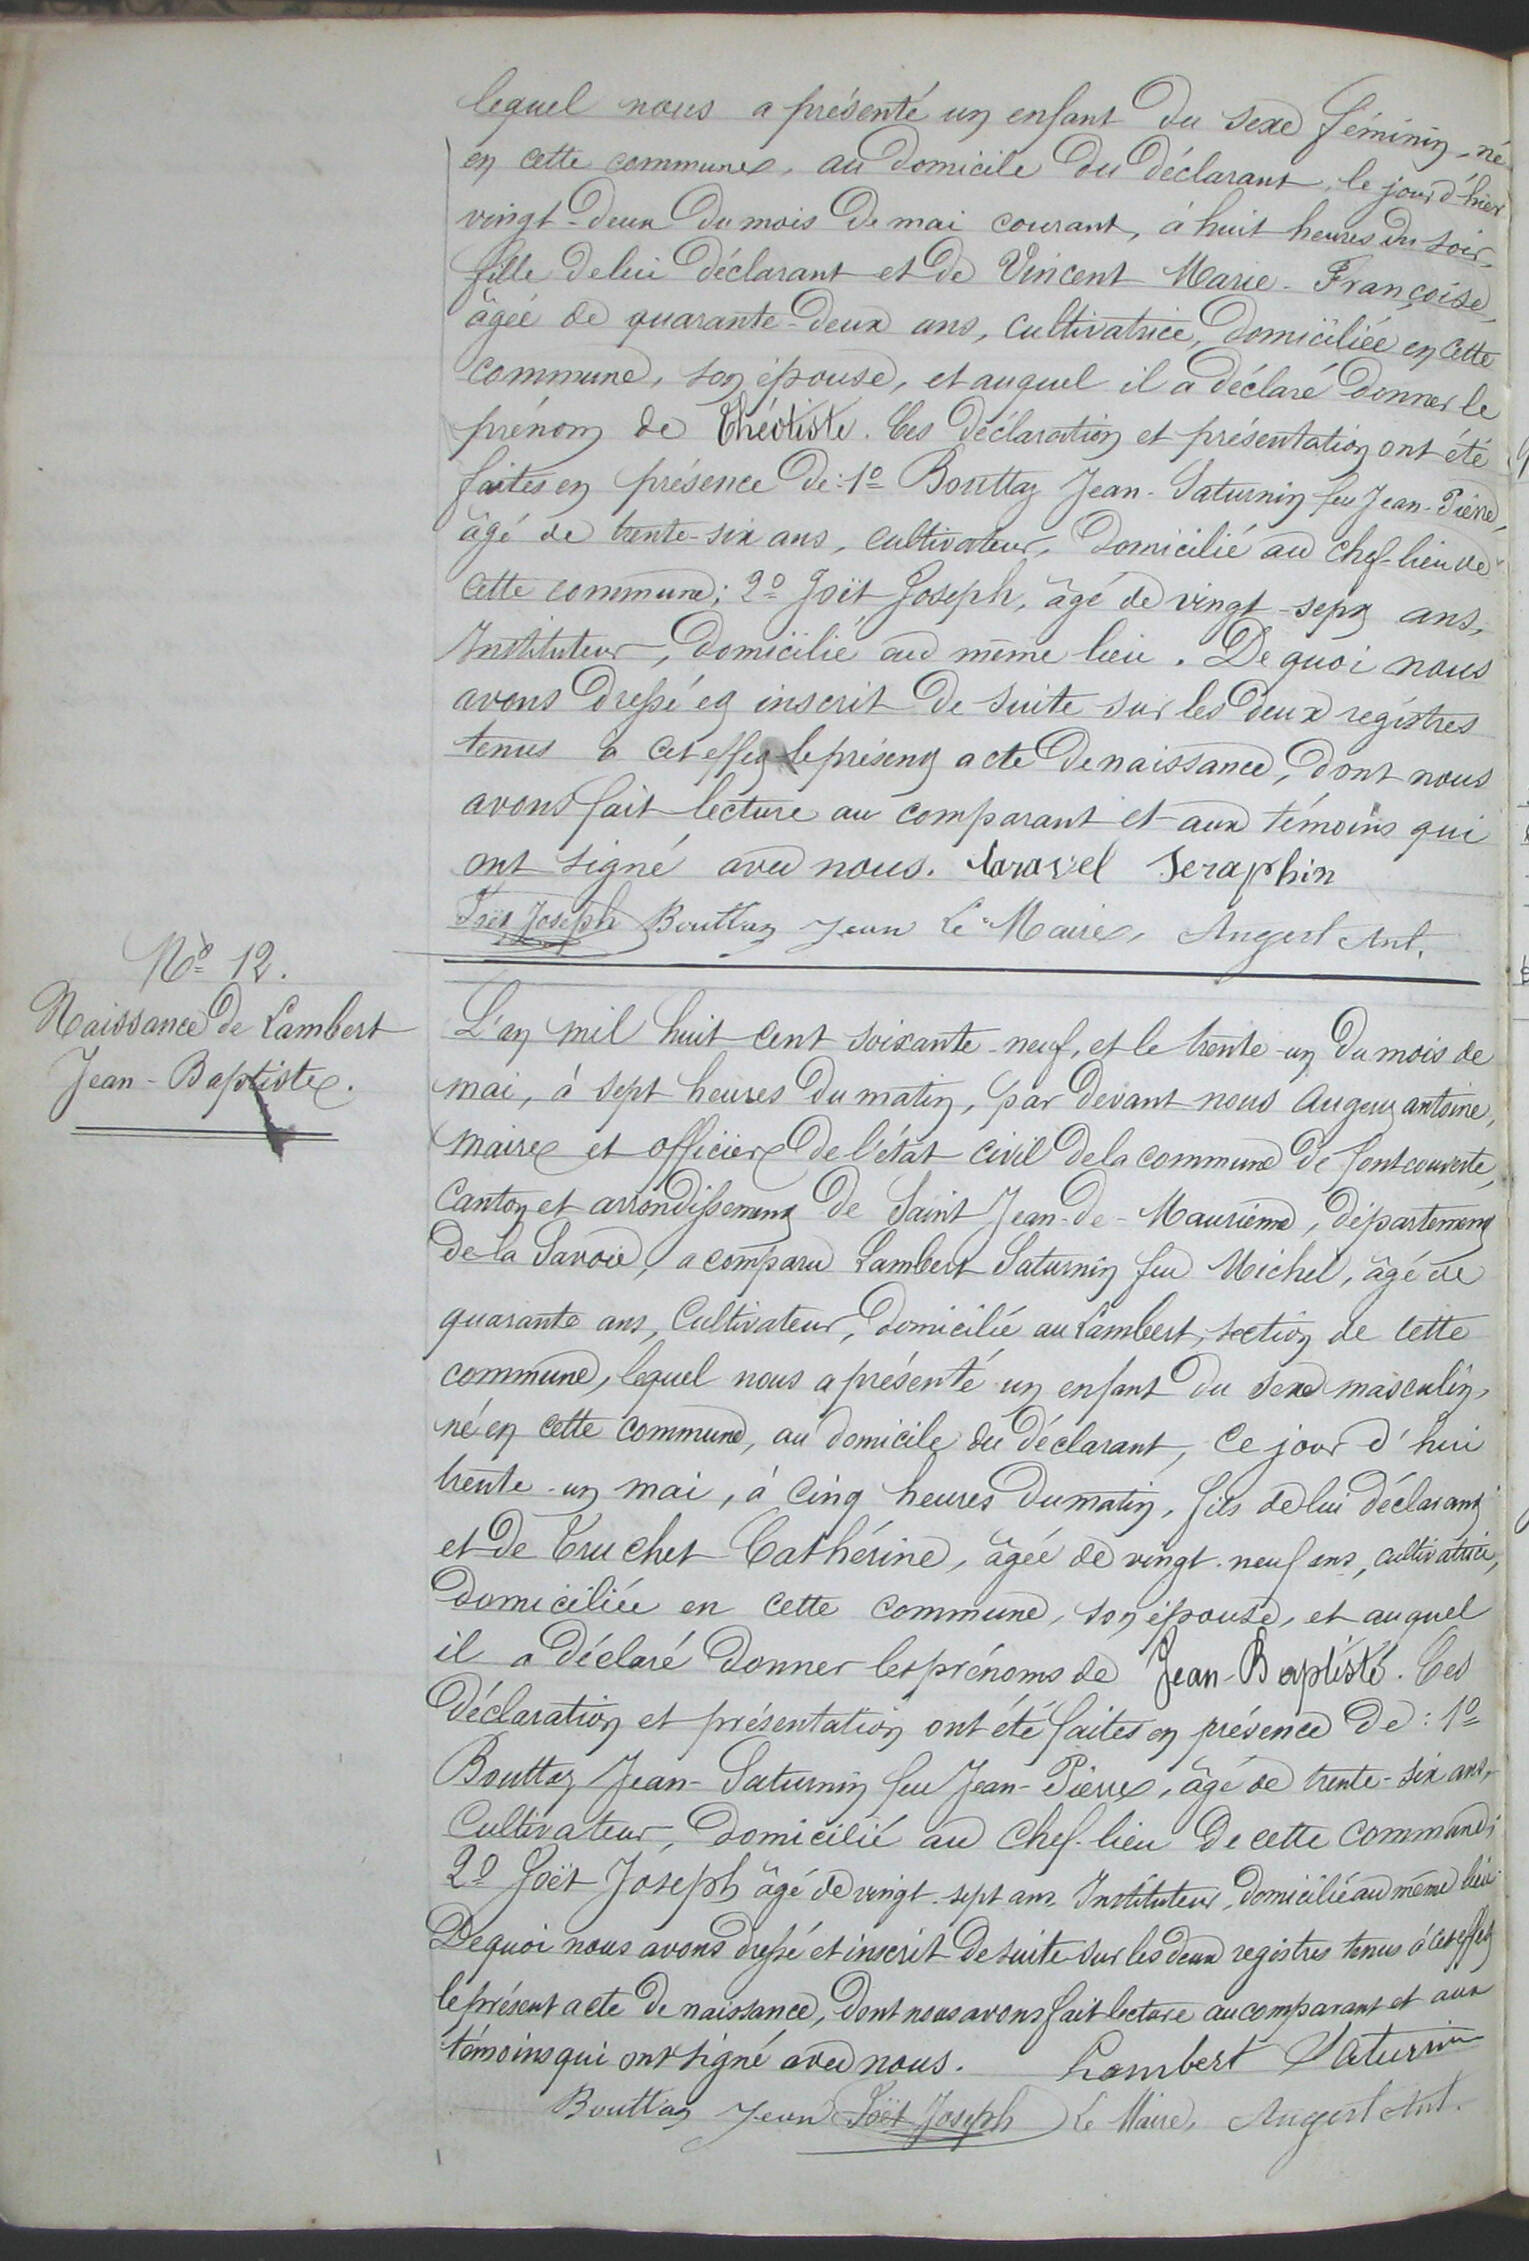 lequel nous a présenté un enfant du sexe féminin, né
en cette commune, au domicile du déclarant, le jour d'hier
vingt-deux du mois de mai courant, à huit heures du soir,
fille de lui déclarant et de Vincent Marie-Françoise,
âgée de quarante-deux ans, cultivatrice, domiciliée en cette
commune, son épouse, et auquel il a déclaré donner le
prénom de Théotiste. Ces déclaration et présentation ont été
faites en présence de: 1º Bouttaz Jean-Saturnin feu Jean-Pierre,
âgé de trente-six ans, cultivateur, domicilié au chef-lieu de
cette commune; 2º Joët Joseph, âgé de vingt-sept ans,
Instituteur, domicilié au même lieu. De quoi nous
avons dressé et inscrit de suite sur les deux registres
tenus à cet effet le présent acte de naissance, dont nous
avons fait lecture au comparant et aux témoins qui
ont signé avec nous. Laravel Seraphin
Joët Joseph Bouttaz Jean Le Maire, Augert Ant.
Nº 12.
Naissance de Lambert
Jean-Baptiste.
L'an mil huit cent soixante-neuf, et le trente-un du mois de
mai, à sept heures du matin, par devant nous Augert antoine,
maire et officier de l'état civil de la commune de fontcouverte,
Canton et arrondissement de Saint Jean-de-Maurienne, département
de la Savoie, a comparu Lambert Saturnin feu Michel, âgé de
quarante ans, Cultivateur, domicilié au Lambert, section de cette
commune, lequel nous a présenté un enfant du sexe masculin,
né en cette commune, au domicile du déclarant, ce jour d'hui
trente-un mai, à cinq heures du matin, fils de lui déclarant
et de Truchet Cathérine, âgée de vingt-neuf ans, cultivatrice,
domiciliée en cette commune, son épouse, et auquel
il a déclaré donner les prénoms de Jean-Baptiste. Ces
déclaration et présentation ont été faites en présence de: 1º
Bouttaz Jean-Saturnin feu Jean-Pierre, âgé de trente-six ans,
Cultivateur, domicilié au chef-lieu de cette commune;
2º Joët Joseph âgé de vingt-sept ans, Instituteur, domicilié au même lieu
De quoi nous avons dressé et inscrit de suite sur les deux registres tenus à cet effet
le présent acte de naissance, dont nous avons fait lecture au comparant et aux
témoins qui ont signé avec nous. Lambert Saturnin
Bouttaz Jean Joët Joseph Le Maire, Augert Ant.